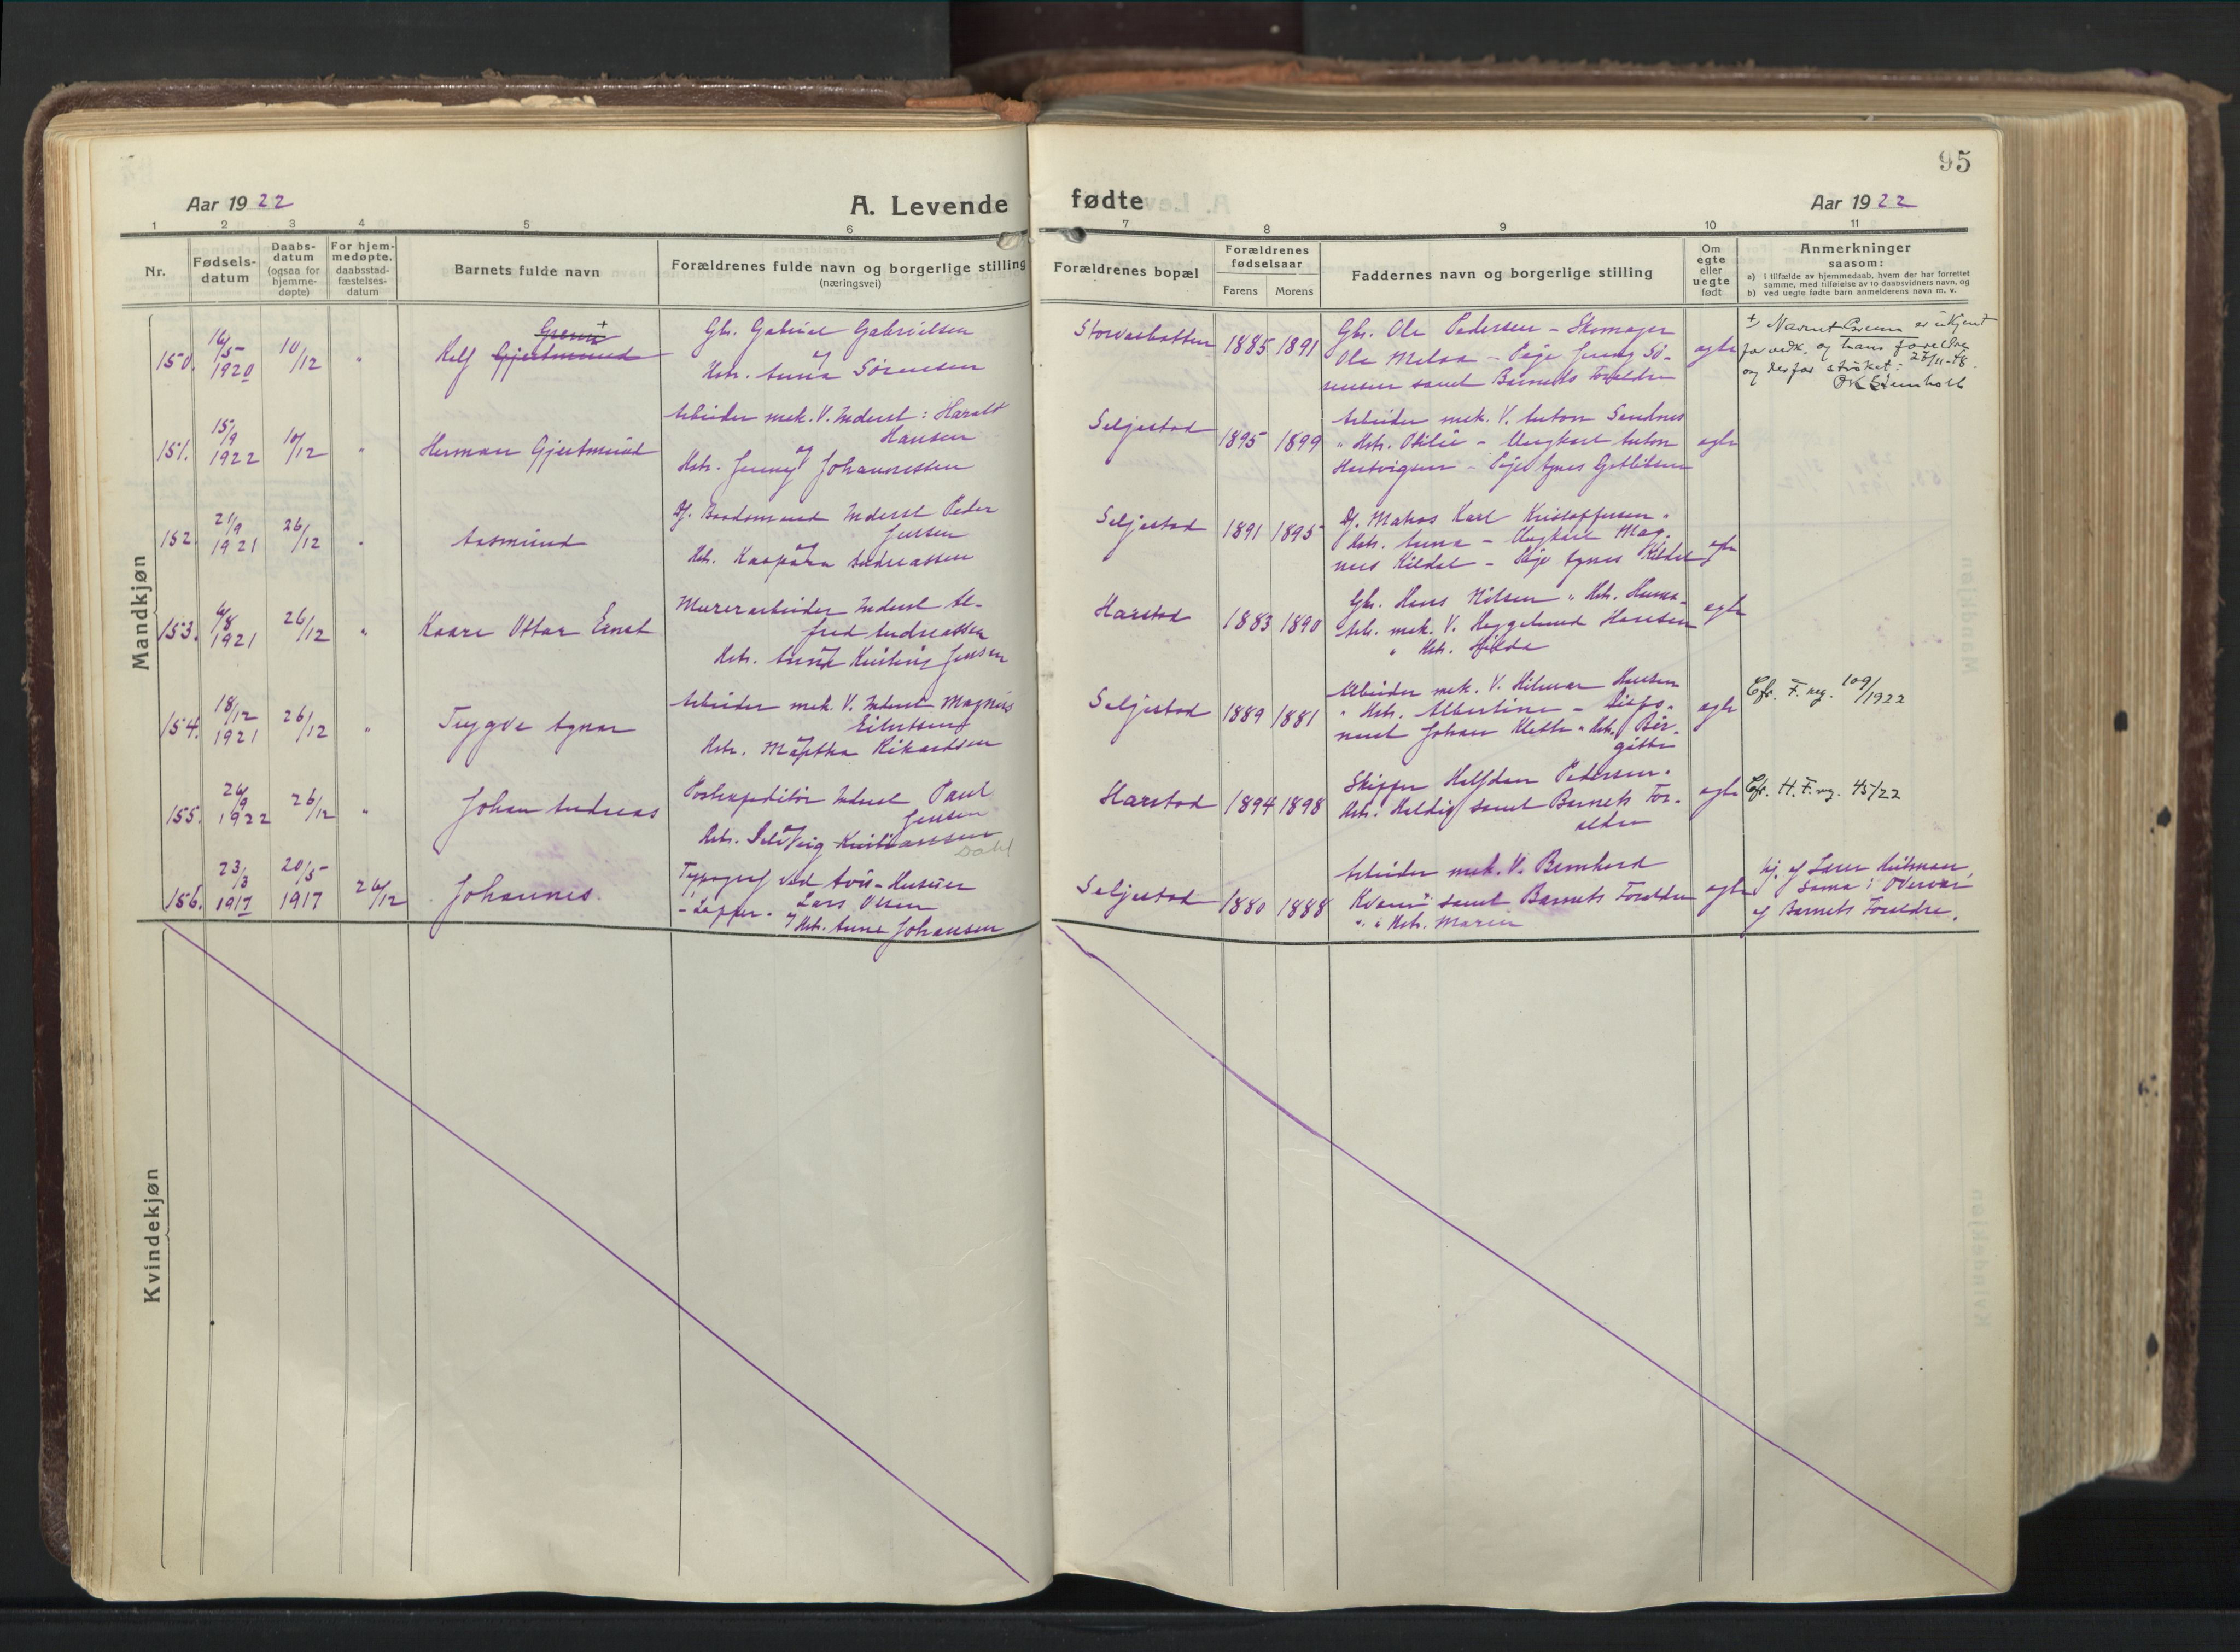 95
Aar 1922
A. Levende fødte
Aar 1922
1 2 3 4 5 6 7 8 9 10 11
Nr.
Fødsels-
datum
Daabs-
datum
(ogsaa for
hjemme-
døpte)
For hjem-
medøpte.
daabsstad-
fæstelses-
datum
Barnets fulde navn
Forældrenes fulde navn og borgerlige stilling
(næringsvei)
Forældrenes bopæl
Forældrenes
fødselsaar
Farens Morens
Faddernes navn og borgerlige stilling
Om
egte
eller
uegte
født
Anmerkninger
saasom:
a) i tilfælde av hjemmedaab, hvem der har forrettet
samme, med tilføielse av to daabsvidners navn, og
b) ved uegte fødte barn anmelderens navn m. v.
Mandkjøn
150. 16/5 1920 10/12 "
Gjertmund
Gb. Gabriel Gabrielsen
og
Hstr. Anna Sørensen
1885 1891
Gb. Ole Pedersen - Skomager
Ole Meløe - Pige Jenny Sø-
rensen samt Barnets Forældre
egte
+) Navnet er ukjent
for vedk. og hans foreldre
og derfor strøket: 27/11-48.
151. 15/9 1922 10/12 "
Herman Gjertmund
Arbeider mek. V. Inderst: Harald
Hansen
og
Hstr. Jenny Johannessen
Seljestad
1895 1899
Arbeider mek. V. Anton Sandnes
" Hstr. Otilie - Ungkarl Anton
Hartvigsen - Pige Agnes
egte
152. 21/9 1921 26/12 "
Aasmund
Df. Baadsmand Inderst Peder
Jensen
og
Hstr. Kaspara Andreassen
Seljestad
1891 1895
Df. Matros Karl Kristoffersen "
Hstr. Anna - Ungkarl Mag-
nus Kildal - Pige Agnes Kildal
egte
153. 6/8 1921 26/12 "
Kaare Ottar Ernst
Murerarbeider Inderst Al-
fred Andreassen
og
Hstr. Anna Kristine Jensen
Harstad
1883 1890
Gb. Hans Nilsen " Hstr. Hanna -
Arb. mek. V. Hansen
" Hstr. Hilda
egte
154. 18/12 1921 26/12 "
Trygve Agnar
Arbeider mek. V. Inderst Magnus
Eilertsen
og
Hstr. Martha Rikardsen
Seljestad
1889 1881
Arbeider mek. V. Hilmar Hansen
" Hstr. Albertine -
Johan Klette " Hstr. Bir-
gitte
egte
Cfr. F. reg. 109/1922
155. 26/9 1922 26/12 "
Johan Andreas
Postexpeditør Inderst Paul
Jensen
og
Hstr. Solveig Kristiansen
Dahl
Harstad
1894 1898
Skipper Halfdan Pedersen "
Hstr. samt Barnets For-
ældre
egte
Cfr. H. F. reg. 45/22
156. 23/3 1917 20/5 1917 26/12
Johannes.
Typograf ved Avis- Huseier
Lars Olsen
og Hstr. Anne Johansen
Seljestad
1880 1888
Arbeider mek. V. Bernhard
samt Barnets Forældre
" " Hstr. Marie
egte
Hj. af Lærer
af Barnets Forældre.
Kvindekjøn